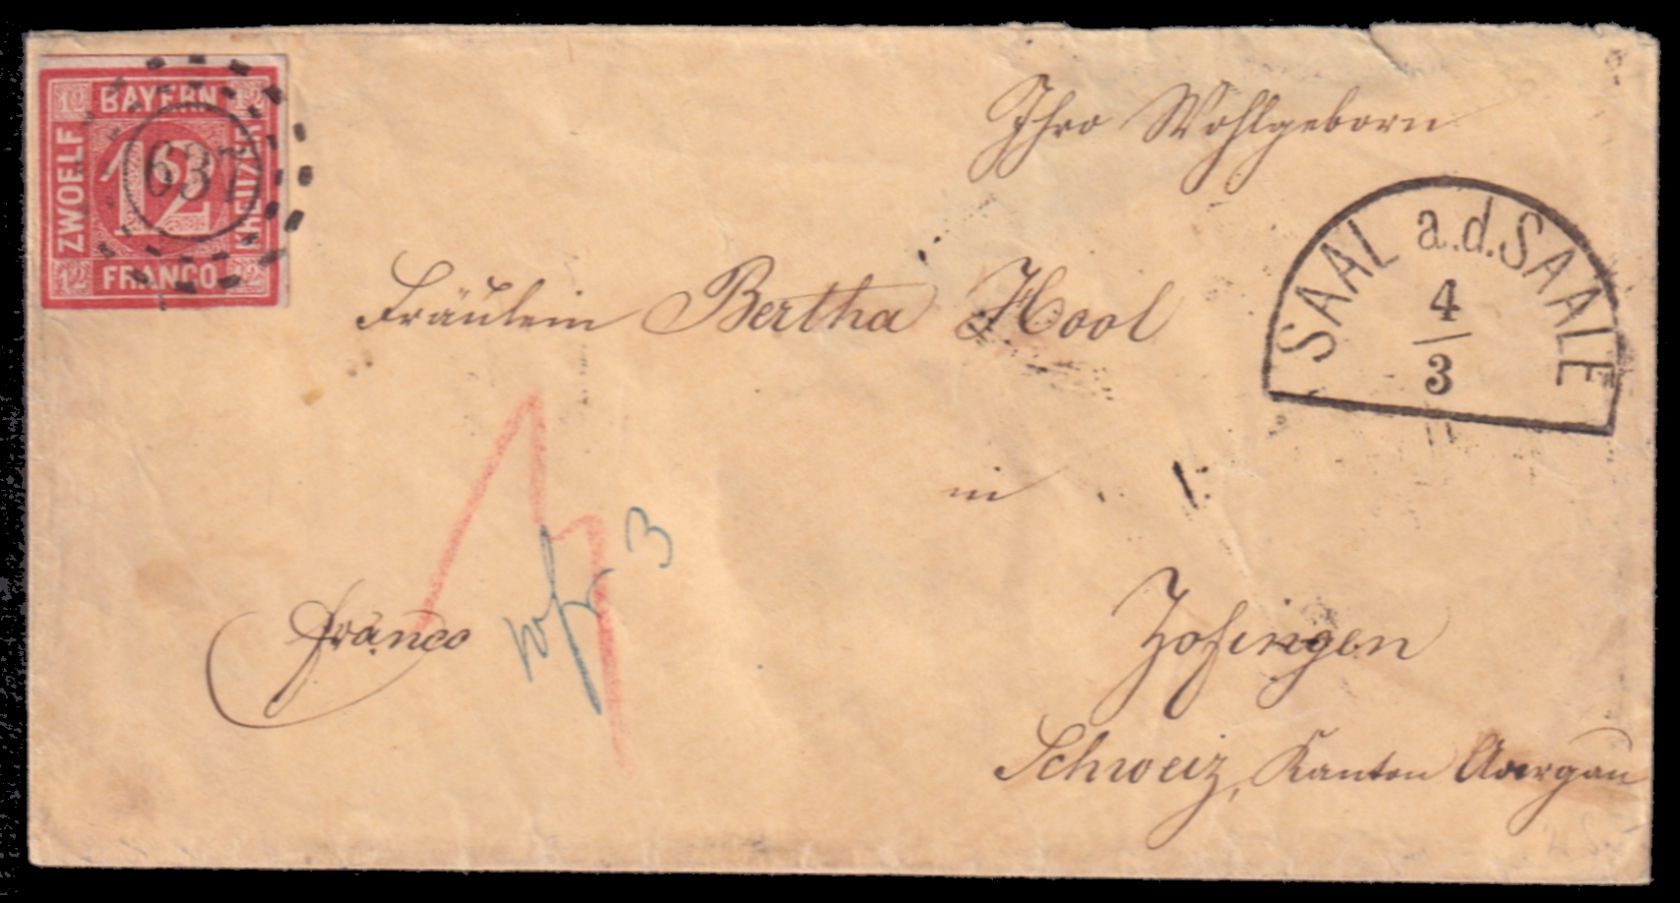 12 BAYERN 12
ZWOELF
KREUZER
12
637
12 FRANCO 12
Ihro Wohlgeborn
Fräulein Bertha Hool
SAAL a.d. SAALE
4
3
in
wfr 3
franco
Zofingen
Schweiz, Kanton Aargau